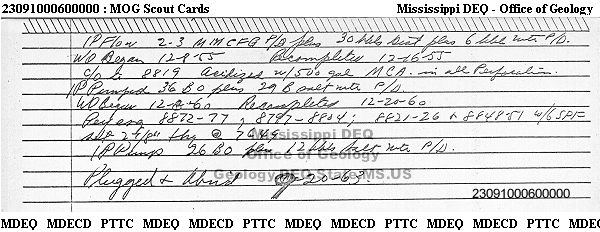 23091000600000 : MOG Scout Cards Mississippi DEQ - Office of Geology
IP Flow 2-3 MMCFG P/D plus 30 bbls dist plus 6 bbl wtr P/D.
WO Began 12-8-55 Recompleted 12-16-55
c/o to 8819 Acidized w/500 gal MCA. in all Perforation.
IP Pumped 36 BO plus 29 B salt wtr P/D.
WO Began 12-60 Recompleted 12-20-60
8872-77, 8797-8804; 8821-26 & 8848-51 w/6
@
Mississippi DEQ
IP Pump 26 BO plus 12 bbls salt wtr P/D.
Office of Geology
Plugged & Aband 20-63.
Geology.DEQ.State.MS.US
23091000600000
MDEQ MDECD PTTC MDEQ MDECD PTTC MDEQ MDECD PTTC MDEQ MDECD PTTC MDEQ MDEC